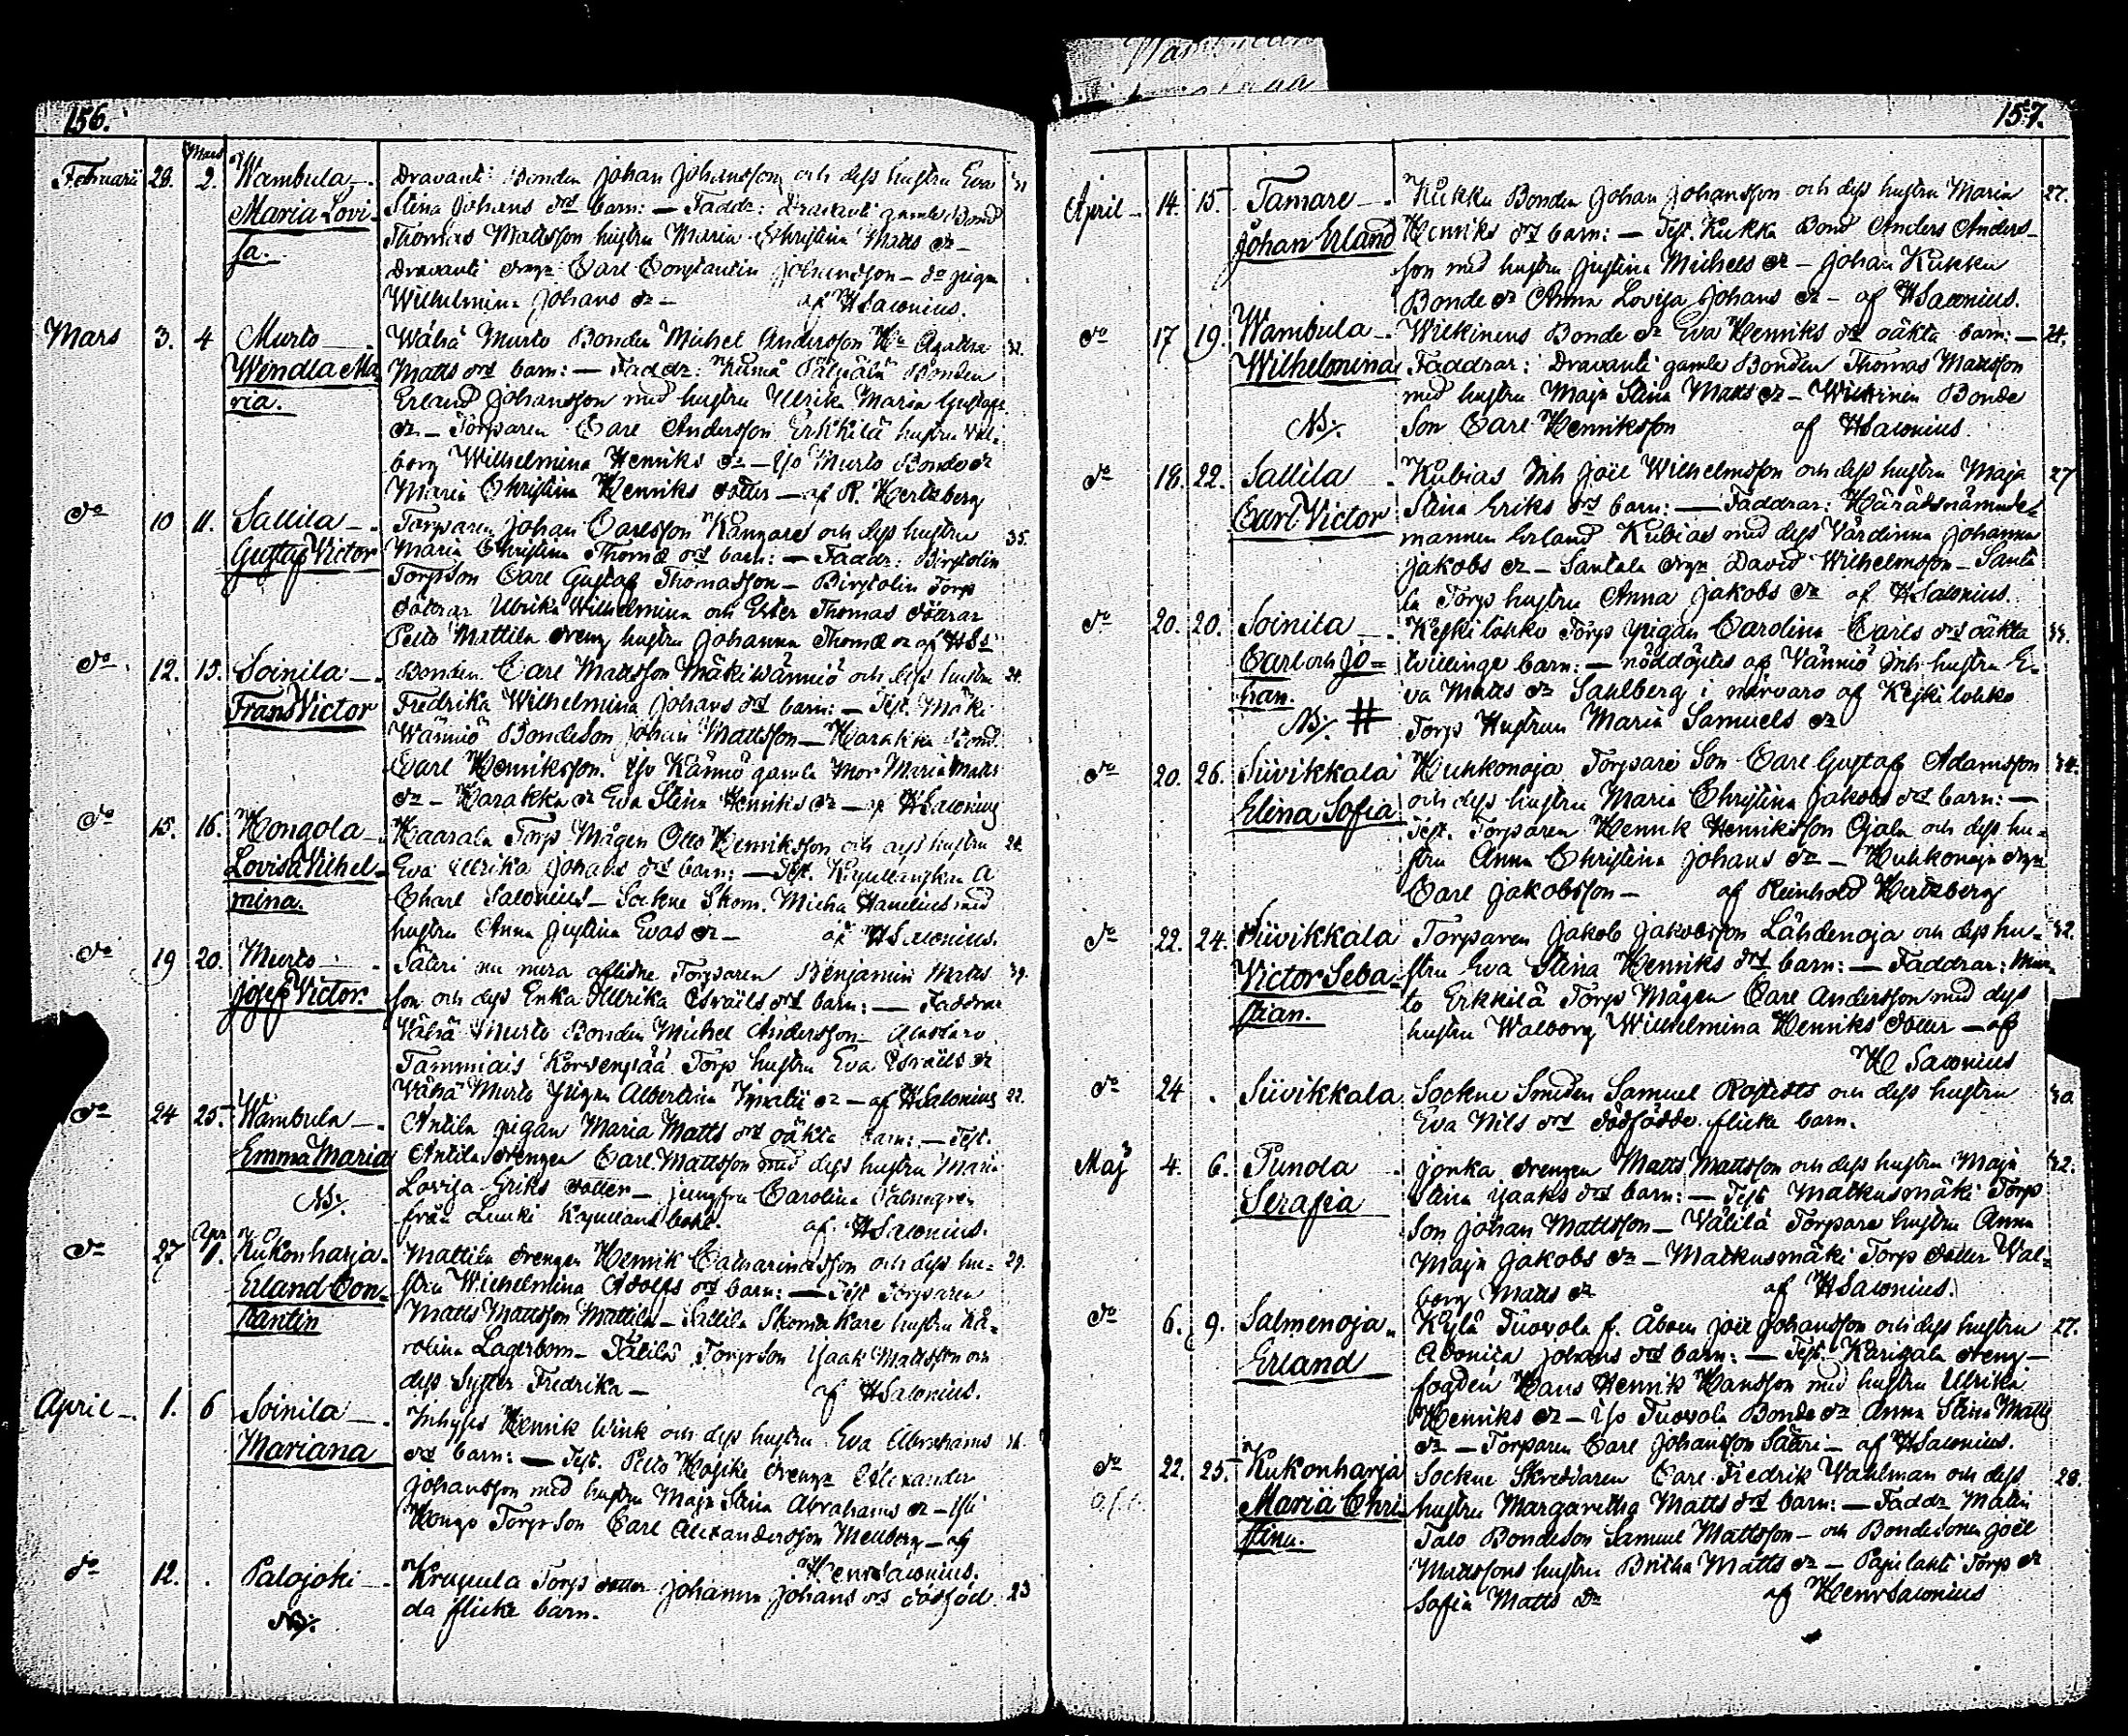 156.
Mars
Februarii 28. 2. Wambula Dravanti Bonden Johan Johansson och dess hustru Eva
Maria Lovi- Stina Johans drs barn: — Faddr: Dravanti gamle Bond
sa. Thomas Mattsson hustru Maria Christina Matts dr —
Dravanti drng Carl Constantin Johansson — do pigan
Wilhelmina Johans dr — af HSalonius.
Mars 3. 4 Murto Wähä Murto Bonden Michel Andersson Agatha
Wendla Ma- Matts drs barn: — Faddr: Bonden
ria. Erland Johansson med hustru Ullrika Maria Gustafs
dr — Torparen Carl Andersson Erkkilä hustru Val-
borg Wilhelmina Henriks dr — Iso Murto Bonde dr
Maria Christina Henriks dotter — af R. Hertzberg
do 10 11. Sallila Torparen Johan Carlsson Kangare och dess hustru 35.
Gustaf Victor Maria Christina Thomæ drs barn: — Faddr: Birstolin
Torpson Carl Gustaf Thomasson — Birstolin Torp
döttrar Ulrika Wilhelmina och Ester Thomas döttrar
Pelto Mattila dreng hustru Johanna Thomæ dr af HSs
do 12. 15. Soinila Bonden Carl Mattsson Mäkiwänniö och dess hustru
Frans Victor Fredrika Wilhelmina Johans drs barn: — Test. Mäki
Wänniö Bondeson Johan Mattsson — Harakka Bond
Carl Henriksson. Iso Känniö gamla Mor Maria Matts
dr — Harakka dr Eva Stina Henriks dr — af HSalonius
do 15. 16. Hongola Haarala Torp Mågen Otto Henriksson och dess hustru
Lovisa Vilhel- Eva Ullrika Johans drs barn: — Test. A
mina. Charl Salonius — Sockne Skom. Micha Hanelius med
hustru Anna Justina Evas dr — af HSalonius.
do 19 20. Murto Säteri nu mera aflidne Torparen Benjamin Matts
Josef Victor. son och dess Enka Ullrika Esraels drs barn: — Faddrar
Wähä Murto Bonden Michel Andersson — Alastaro
Tammiais Korvenpää Torp hustru Eva Esraels dr
Wähä Murto Pigan Albertina dr — af HSalonius
do 24 25. Wambula Antila pigan Maria Matts drs oäkta barn: — Test. 22.
Emma Maria Antila drengen Carl Mattsson med dess hustru Maria
NB/. Lovisa Eriks dotter — jungfru Carolina Palmgren
från Kapellansbohl. af HSalonius.
Apr
do 27 1. Kukonharja Mattila drengen Henrik Catharinasson och dess hu- 29.
Erland Con- stru Wilhelmina Adolfs drs barn: — Test Torparen
stantin Matts Mattsson Mattila — Sallila Skomakare hustru Ka-
rolina Lagerbom — Tälilä Torpson Isaak Mattsson och
dess Syster Fredrika — af HSalonius.
April 1. 6 Soinila Inhyses Henrik Wink och dess hustru Eva Abrahams
Mariana drs barn: — Test. Pelto drengn Alexander
Johansson med hustru Maja Stina Abrahams dr — Iso
Hongo Torpson Carl Alexandersson Mellberg — af
Henr Salonius.
do 12. Palojoki Krupula Torp dotter Johanna Johans drs dödföd- 23
NB/. da flicke barn.
157.
April 14. 15. Tamare Kukku Bonden Johan Johansson och dess hustru Maria 27.
Johan Erland Henriks drs barn: — Test. Kukka Bond Anders Anders-
son med hustru Justina Michels dr — Johan Kukku
Bonde dr Anna Lovisa Johans dr — af HSalonius.
do 17 19. Wambula Wilkinens Bonde dr Eva Henriks drs oäkta barn: — 24.
Wilhelmina Faddrar: Dravanti gamle Bonden Thomas Mattsson
med hustru Maja Stina Matts dr — Wilkinen Bonde
NB/. Son Carl Henriksson af HSalonius.
do 18. 22. Sallila Kubias Inh Joel Wilhelmsson och dess hustru Maja 27
Carl Victor Stina Eriks drs barn: — Faddrar: Häradsnämnde-
mannen Erland Kubias med dess Värdinna Johanna
Jakobs dr — Santala drgn David Wilhelmsson — Santa
la Torp hustru Anna Jakobs dr af HSalonius.
do 20. 20. Soinila Keskilohko Torp pigan Carolina Carls drs oäkta
Carl och Jo- tvillinge barn: — nöddöptes af Vänniö Inh hustru E-
han. va Matts dr Sahlberg i närvaro af Keskilohko
NB/. # Torp Hustrun Maria Samuels dr
do 20. 26. Siivikkala Huhkonoja Torpare Son Carl Gustaf Adamsson
Elina Sofia och dess hustru Maria Christina Jakobs drs barn: —
Test. Torparen Henrik Henriksson Ojala och dess hu-
stru Anna Christina Johans dr — Huhkonoja drgn
Carl Jakobsson — af Reinhold Hertzberg
do 22. 24. Siivikkala Torparen Jakob Jakobsson Lähdenoja och dess hu-
Victor Seba- stru Eva Stina Henriks drs barn: — Faddrar: Mur-
stian. to Erkkilä Torp Mågen Carl Andersson med dess
hustru Walborg Wilhelmina Henriks dotter — af
H Salonius
do 24 Siivikkala Sockne Smeden Samuel Rostedts och dess hustru
Eva Nils drs dödfödde flicke barn.
Maj 4. 6. Punola Jonka drengen Matts Mattsson och dess hustru Maja
Serafia Stina Isaaks drs barn: — Test Matkusmäki Torp
Son Johan Mattsson — Välilä Torpare hustru Anna
Maja Jakobs dr — Matkusmäki Torp dotter Wal-
borg Matts dr af HSalonius.
do 6. 9. Salmenoja Kylä Tuovola f. Åboen Joel Johansson och dess hustru 27.
Erland Adonica Johans drs barn: — Test. Karisala dreng-
fogden Hans Henrik Hansson med hustru Ullrika
Henriks dr — Iso Tuovola Bonde dr Anna Stina Matts
dr — Torparen Carl Johansson Säteri — af HSalonius.
do 22. 25. Kukonharja Sockne Skreddaren Carl Fredrik Wahlman och dess 28.
Maria Chri- hustru Margaretha Matts drs barn: — Faddr Matin
stina. Talo Bondeson Samuel Mattsson — och Bondesonen Joel
Mattssons hustru Britha Matts dr — Papilahti Torp dr
Sofia Matts dr af Henr Salonius